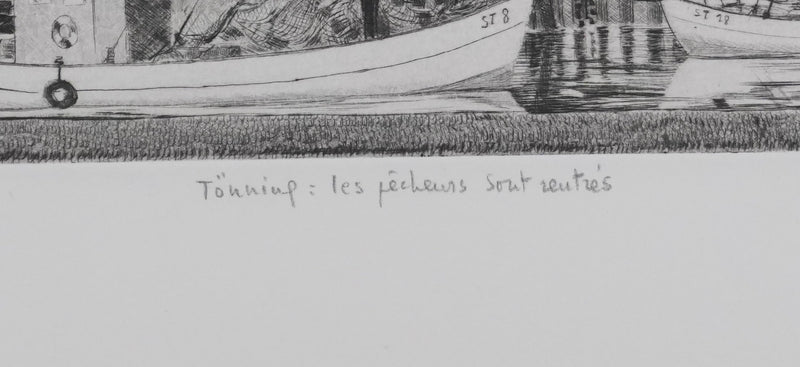 ST 8
ST 28
Tönning : les pêcheurs sont rentrés